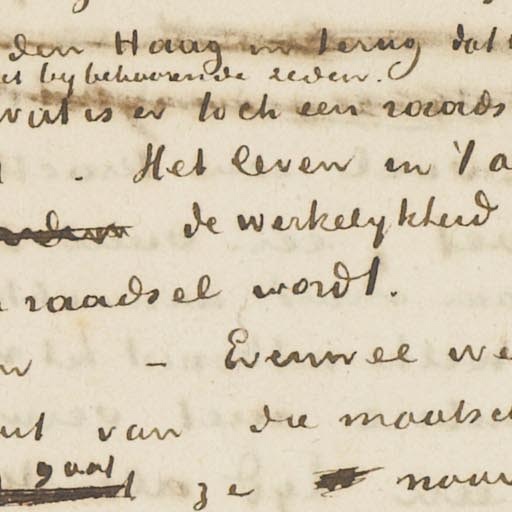 den Haag in terug dat
et bybehoorende reden.
wat is er toch een raads
. Het leven in 't a
de werkelykheid
raadsel wordt.
– Evenwel we
uit van die maatsch
gaat ze naar